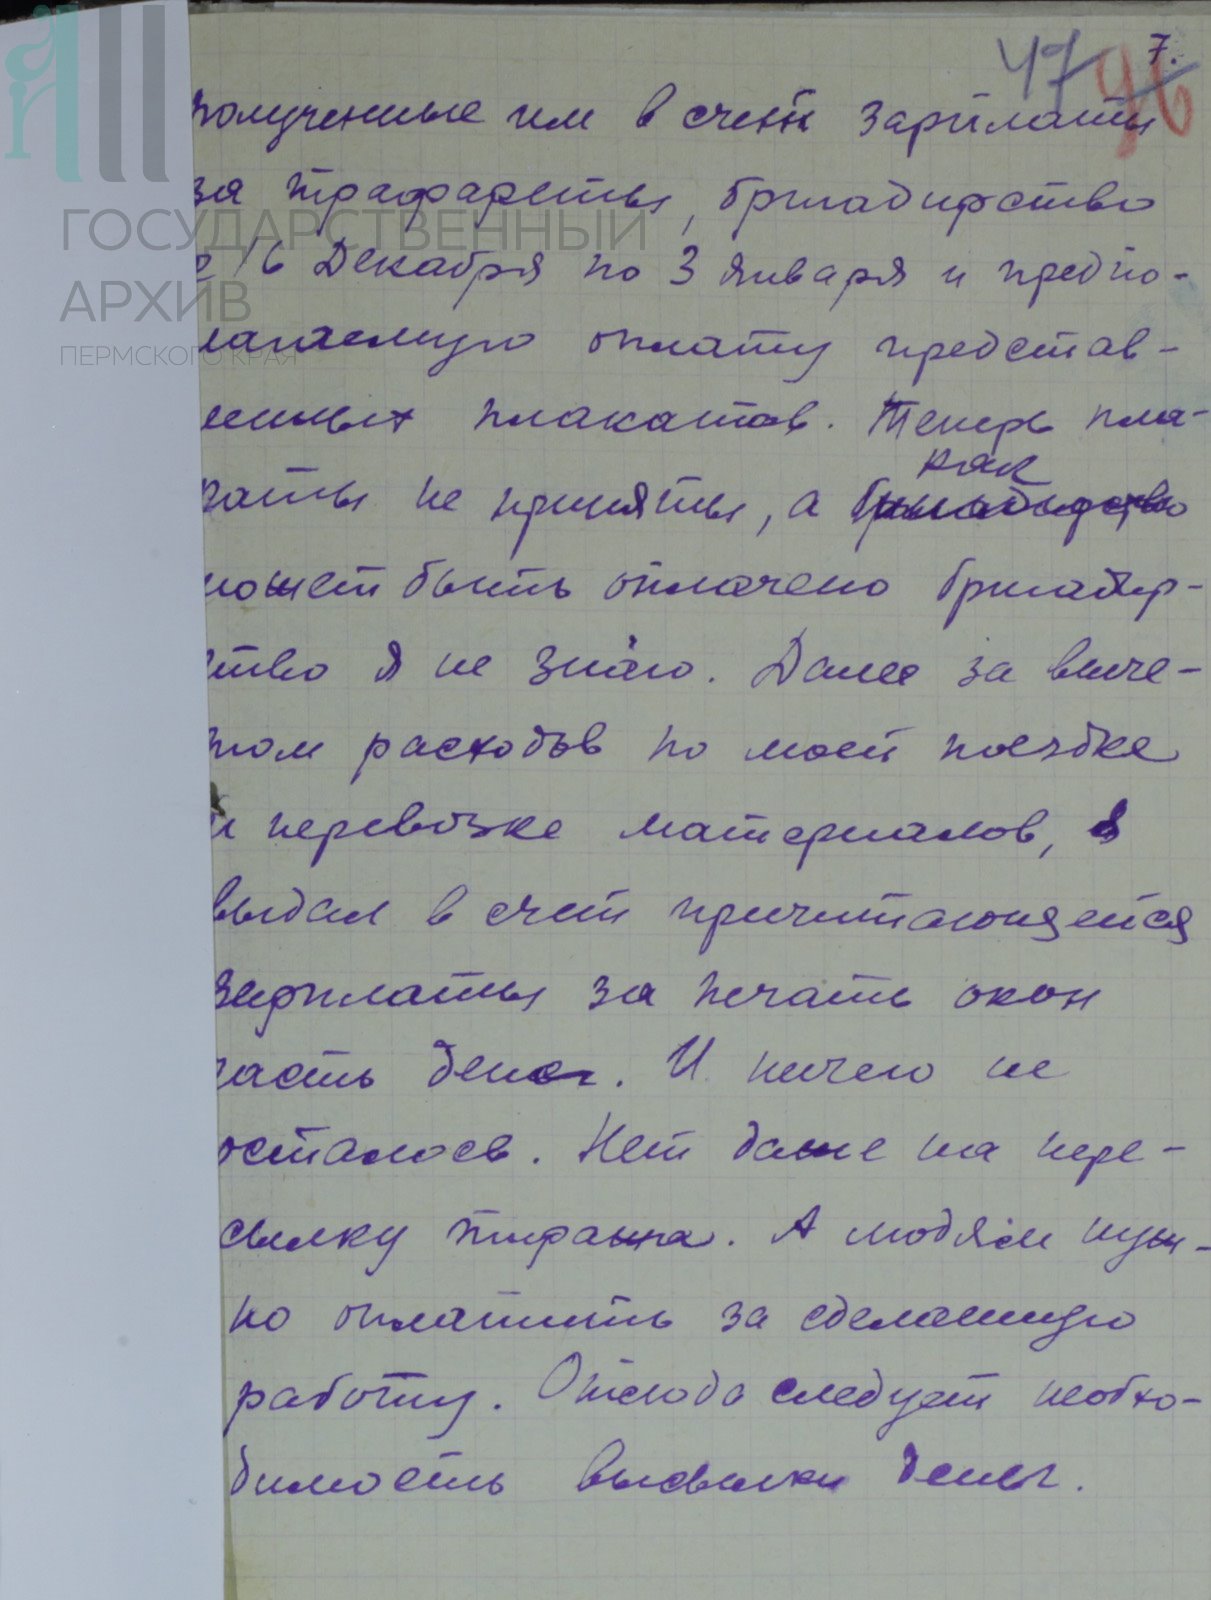 7.
47
96
полученные им в счет зарплаты
за трафареты, бригадирство
с 16 Декабря по 3 января и предпо-
лагаемую оплату представ-
ленных плакатов. Теперь пла-
каты не приняты, а как
может быть оплачено бригадир-
ство я не знаю. Далее за выче-
том расходов по моей поездке
и перевозке материалов, я
выдал в счет причитающейся
зарплаты за печать окон
часть денег. И ничего не
осталось. Нет даже на пере-
сылку тиража. А людям нуж-
но оплатить за сделанную
работу. Отсюда следует необхо-
димость высылки денег.
ГОСУДАРСТВЕННЫЙ
АРХИВ
ПЕРМСКОГО КРАЯ